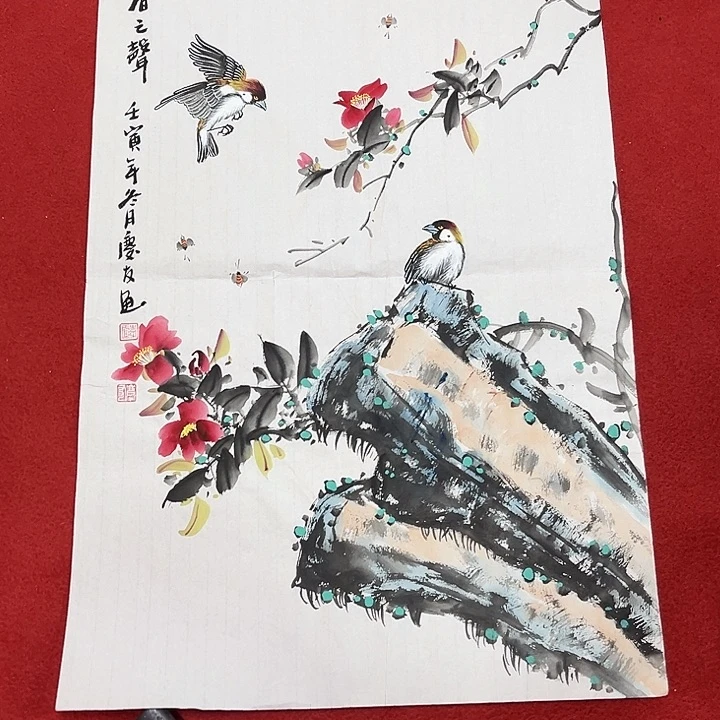 春之聲
壬寅年冬月慶友画